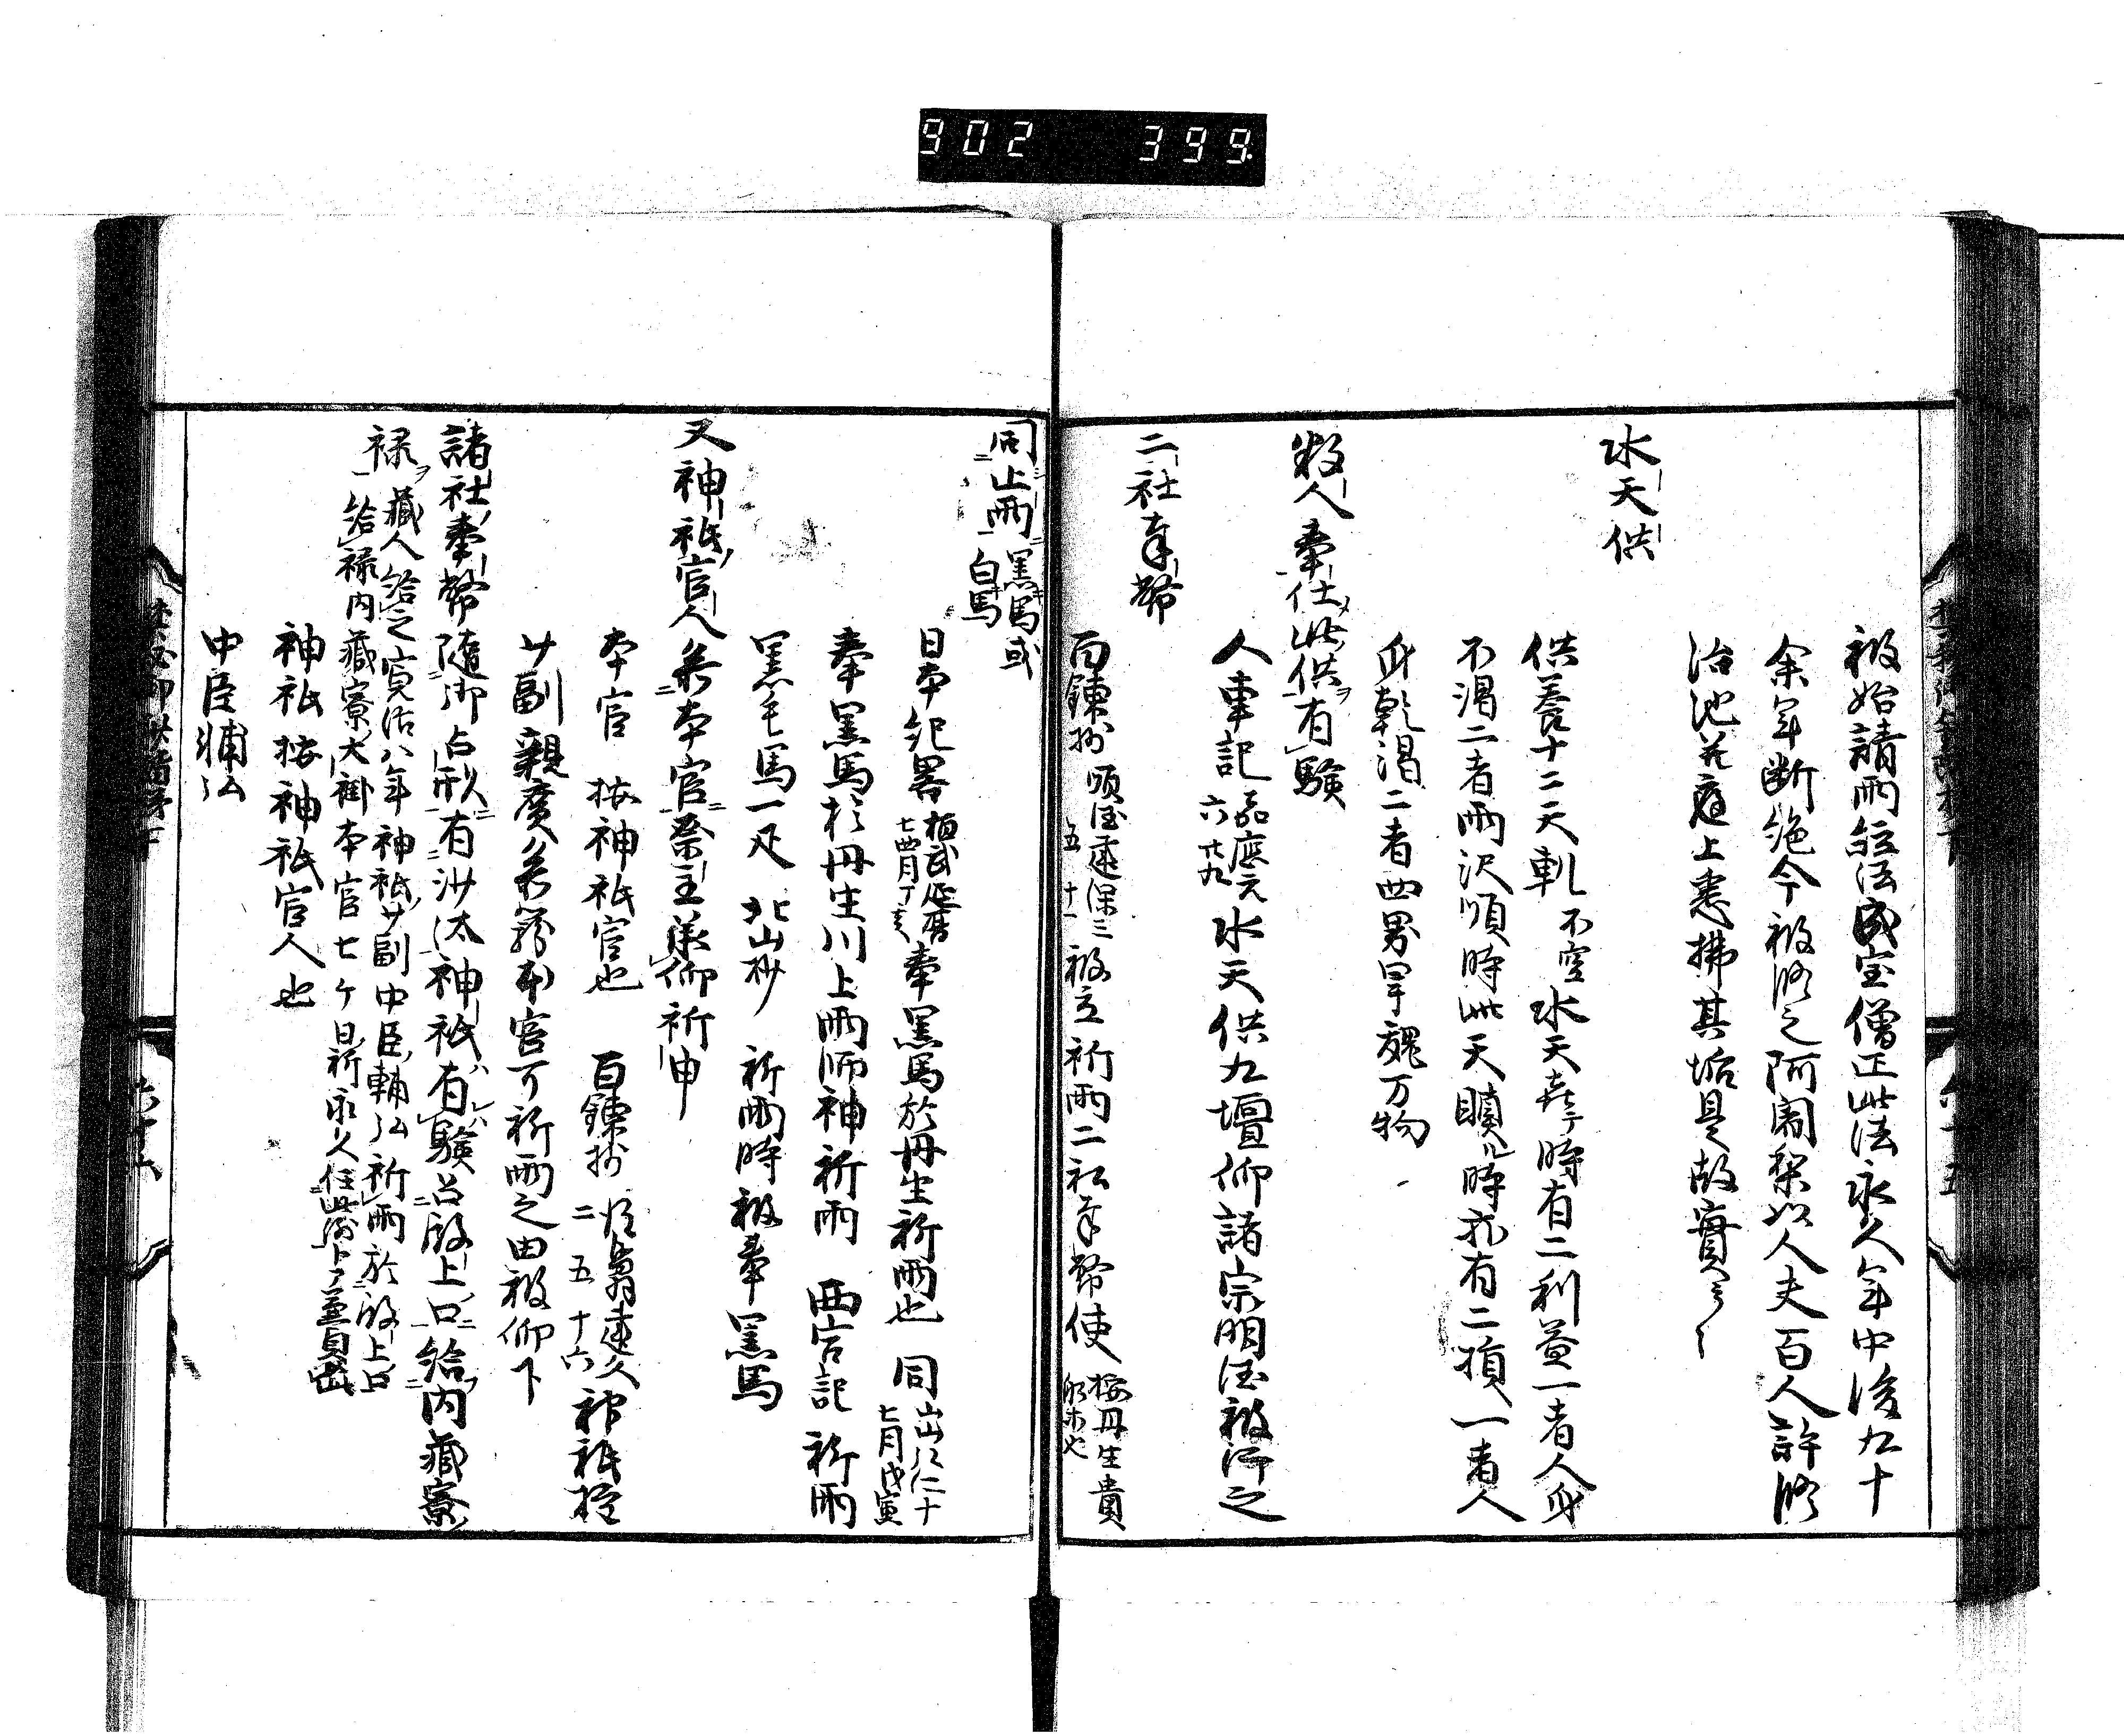 902 399
被始請雨経法成宝僧正此法永久年中後九十
余年断絶今被修之阿闍梨以人夫百人許修
治池并庭上悉拂其垢是故實々々
水天供
供養十二天軌 不空 水天喜時有二利益一者人身
不渇二者雨沢順時此天瞋時亦有二損一者人
身乾渇二者世界旱魃万物
数人奉仕此供有験
人車記 嘉應元 六 廿九 水天供九壇仰諸宗明匠被行之
二社奉幣
百錬抄 順徳建保三 五 十一 被立祈雨二社奉幣使 按丹生貴船等也
同止雨 黒馬或白馬
日本紀畧 桓武延暦七四月丁亥 奉黒馬於丹生祈雨也 同 弘仁十七月戊寅
奉黒馬於丹生川上雨師神祈雨 西宮記 祈雨
黒毛馬一疋 北山抄 祈雨時被奉黒馬
又神祇官人参本官祭主承仰祈申
本官 按神祇官也 百錬抄 後鳥羽建久二 五 十六 神祇権
少副親廣参篭本官可祈雨之由被仰下
諸社奉幣随御占形有沙太神祇有験召殿上口給内藏寮
禄 藏人給之寛治八年神祇少副中臣輔弘祈雨於殿上口
給禄内藏寮大褂本官七ヶ日祈永久
神祇 按神祇官人也
中臣輔弘